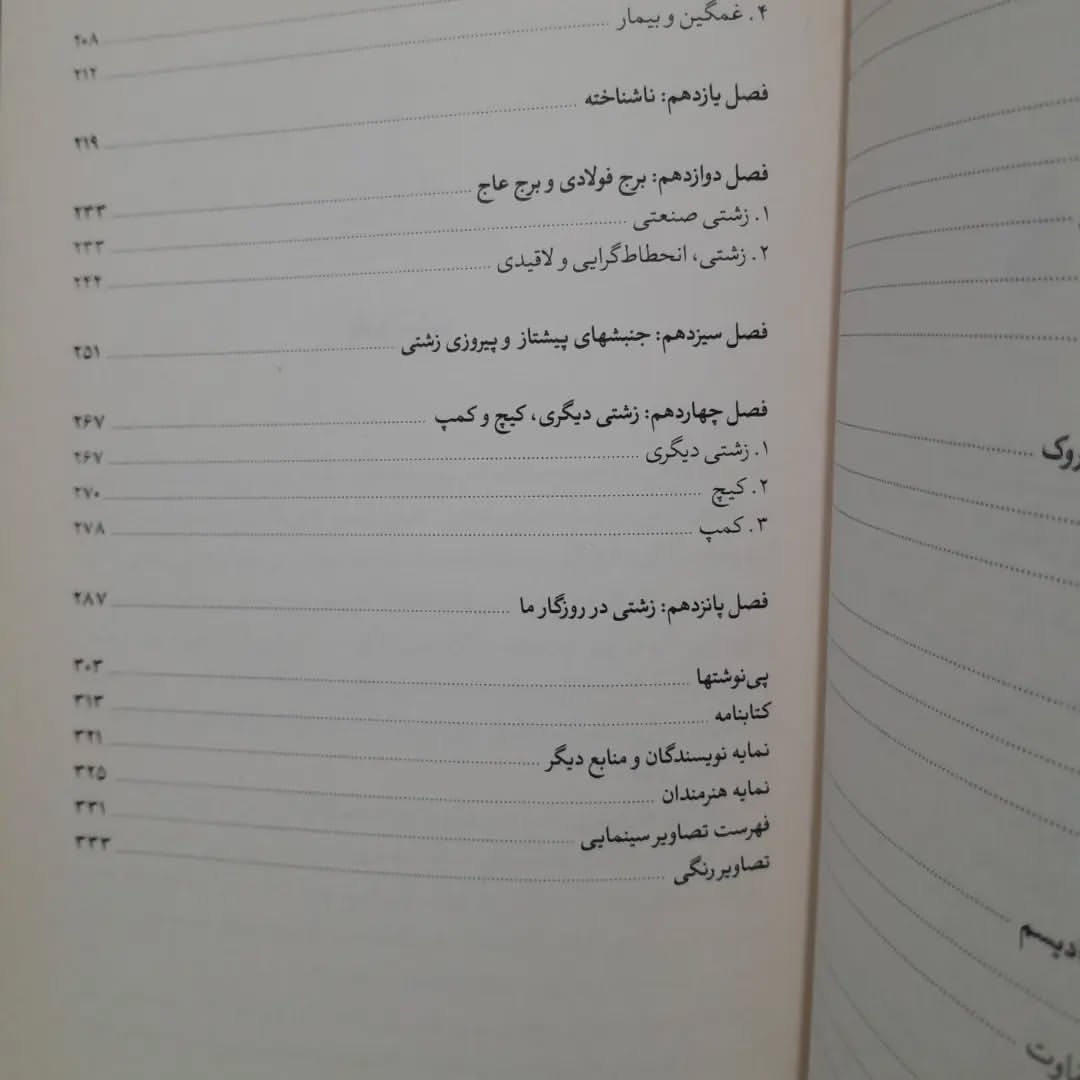 ۲۰۸
۴. غمگین و بیمار ........ ۲۱۲
فصل یازدهم: ناشناخته ........ ۲۱۹
فصل دوازدهم: برج فولادی و برج عاج ........ ۲۳۳
۱. زشتی صنعتی ........ ۲۳۳
۲. زشتی، انحطاط‌گرایی و لاقیدی ........ ۲۴۴
فصل سیزدهم: جنبشهای پیشتاز و پیروزی زشتی ........ ۲۵۱
فصل چهاردهم: زشتی دیگری، کیچ و کمپ ........ ۲۶۷
۱. زشتی دیگری ........ ۲۶۷
۲. کیچ ........ ۲۷۰
۳. کمپ ........ ۲۷۸
فصل پانزدهم: زشتی در روزگار ما ........ ۲۸۷
پی‌نوشتها ........ ۳۰۳
کتابنامه ........ ۳۱۳
نمایه نویسندگان و منابع دیگر ........ ۳۲۱
نمایه هنرمندان ........ ۳۲۵
فهرست تصاویر سینمایی ........ ۳۳۱
تصاویر رنگی ........ ۳۳۳